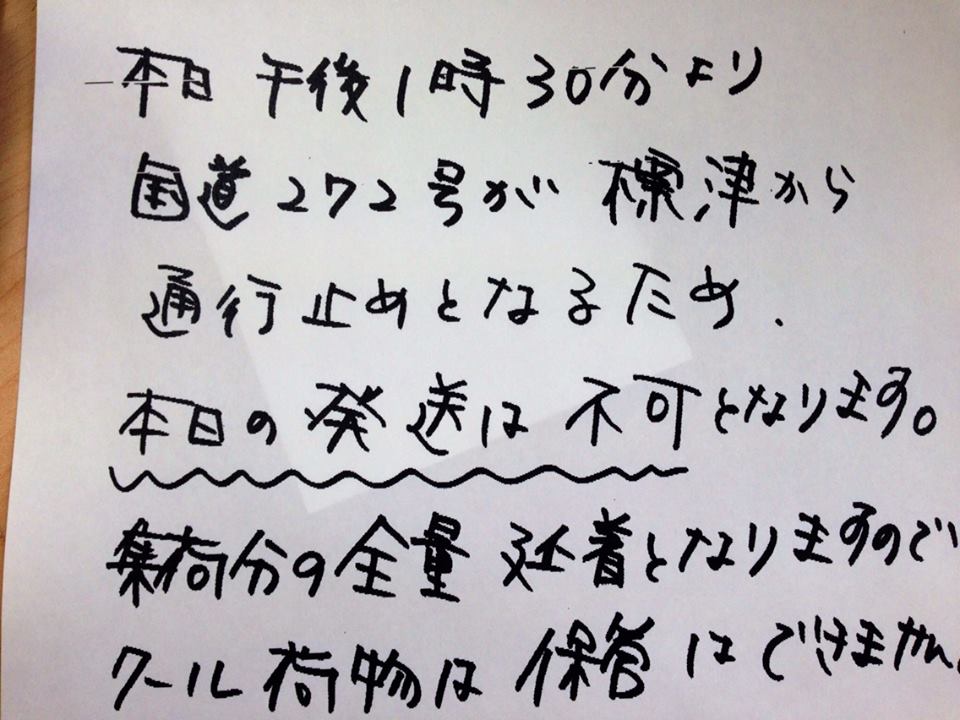 本日 午後1時30分より
国道272号が 標津から
通行止めとなるため.
本日の発送は不可となります。
集荷分の全量 延着となりますので
クール荷物は保管はできません。